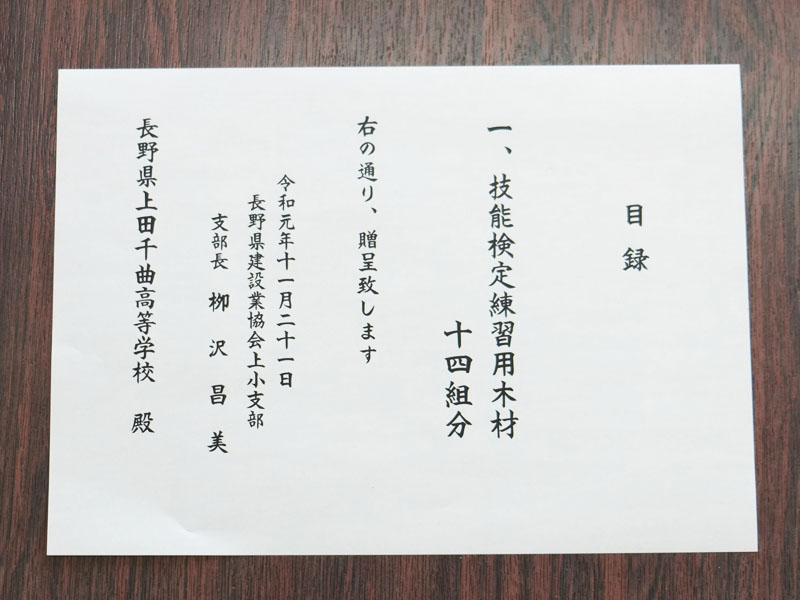 目録
一、技能検定練習用木材
十四組分
右の通り、贈呈致します
令和元年十一月二十一日
長野県建設業協会上小支部
支部長 栁沢昌美
長野県上田千曲高等学校 殿